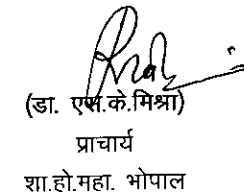 (डा. एस.के.मिश्रा)
प्राचार्य
शा.हो.महा. भोपाल